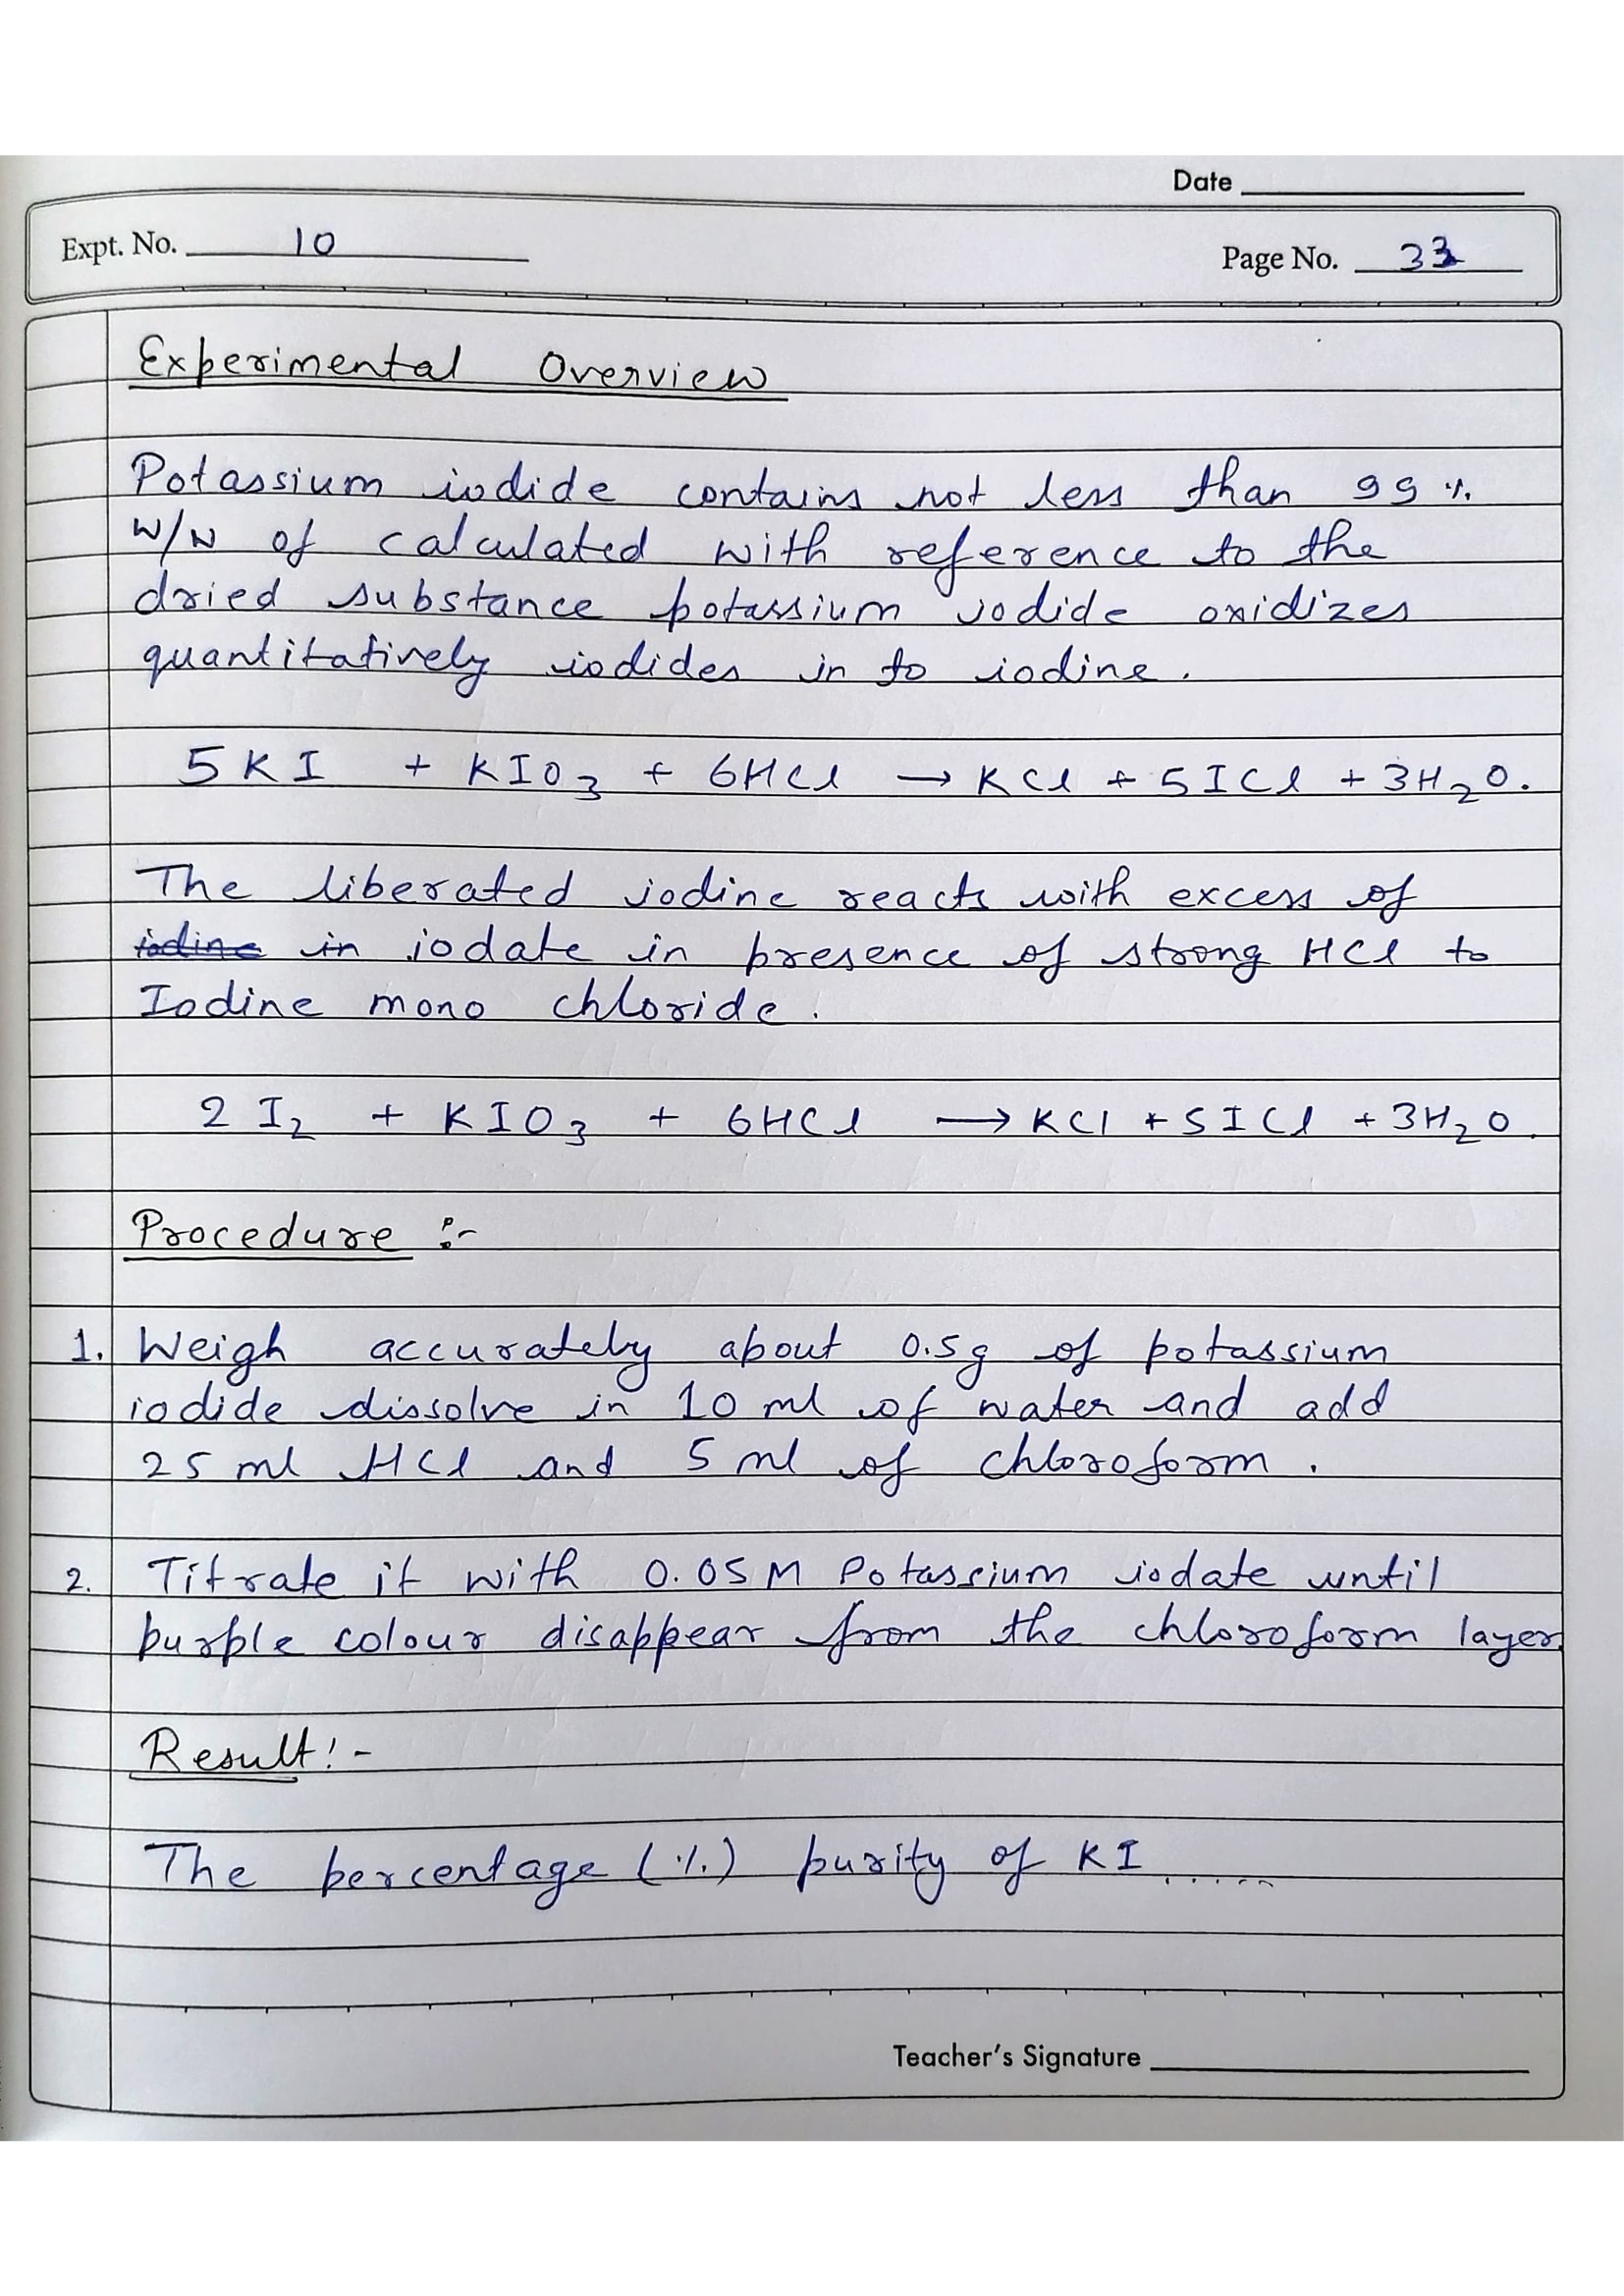 Date
Expt. No. 10
Page No. 33
Experimental Overview
Potassium iodide contains not less than 99 %
w/w of calculated with reference to the
dried substance potassium iodide oxidizes
quantitatively iodides in to iodine.
5KI + KIO3 + 6HCl → KCl + 5ICl + 3H2O.
The liberated iodine reacts with excess of
iodine in iodate in presence of strong HCl to
Iodine mono chloride.
2I2 + KIO3 + 6HCl → KCl + 5ICl + 3H2O.
Procedure :-
1. Weigh accurately about 0.5g of potassium
iodide dissolve in 10 ml of water and add
25 ml HCl and 5 ml of chloroform.
2. Titrate it with 0.05M Potassium iodate until
purple colour disappear from the chloroform layer
Result:-
The percentage (%) purity of KI ......
Teacher's Signature